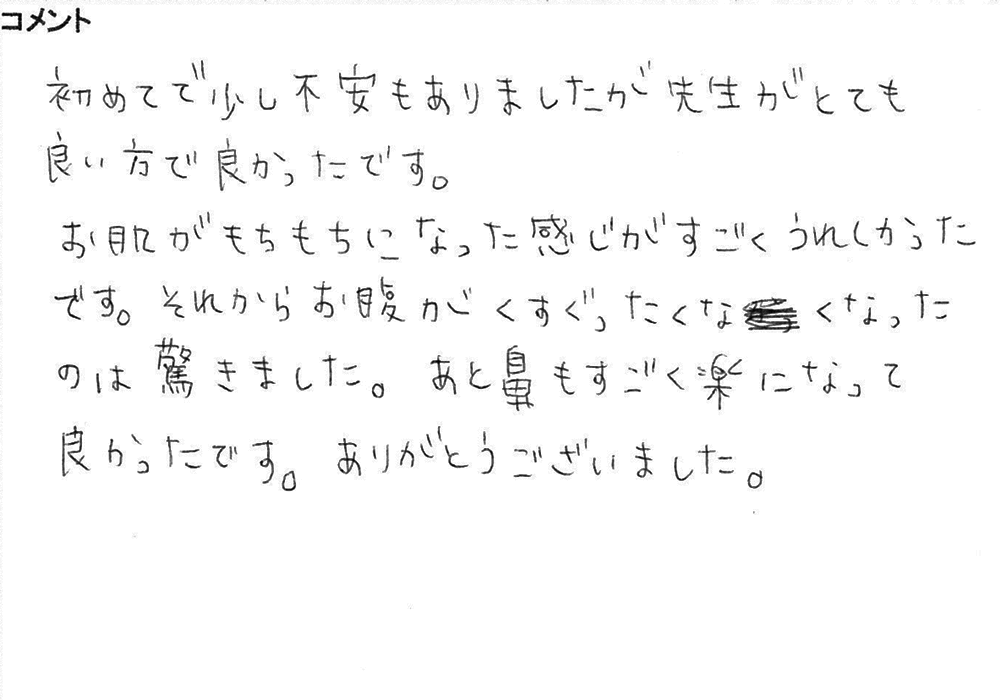 コメント
初めてで少し不安もありましたが先生がとても
良い方で良かったです。
お肌がもちもちになった感じがすごくうれしかった
です。それからお腹がくすぐったくなくなった
のは驚きました。あと鼻もすごく楽になって
良かったです。ありがとうございました。